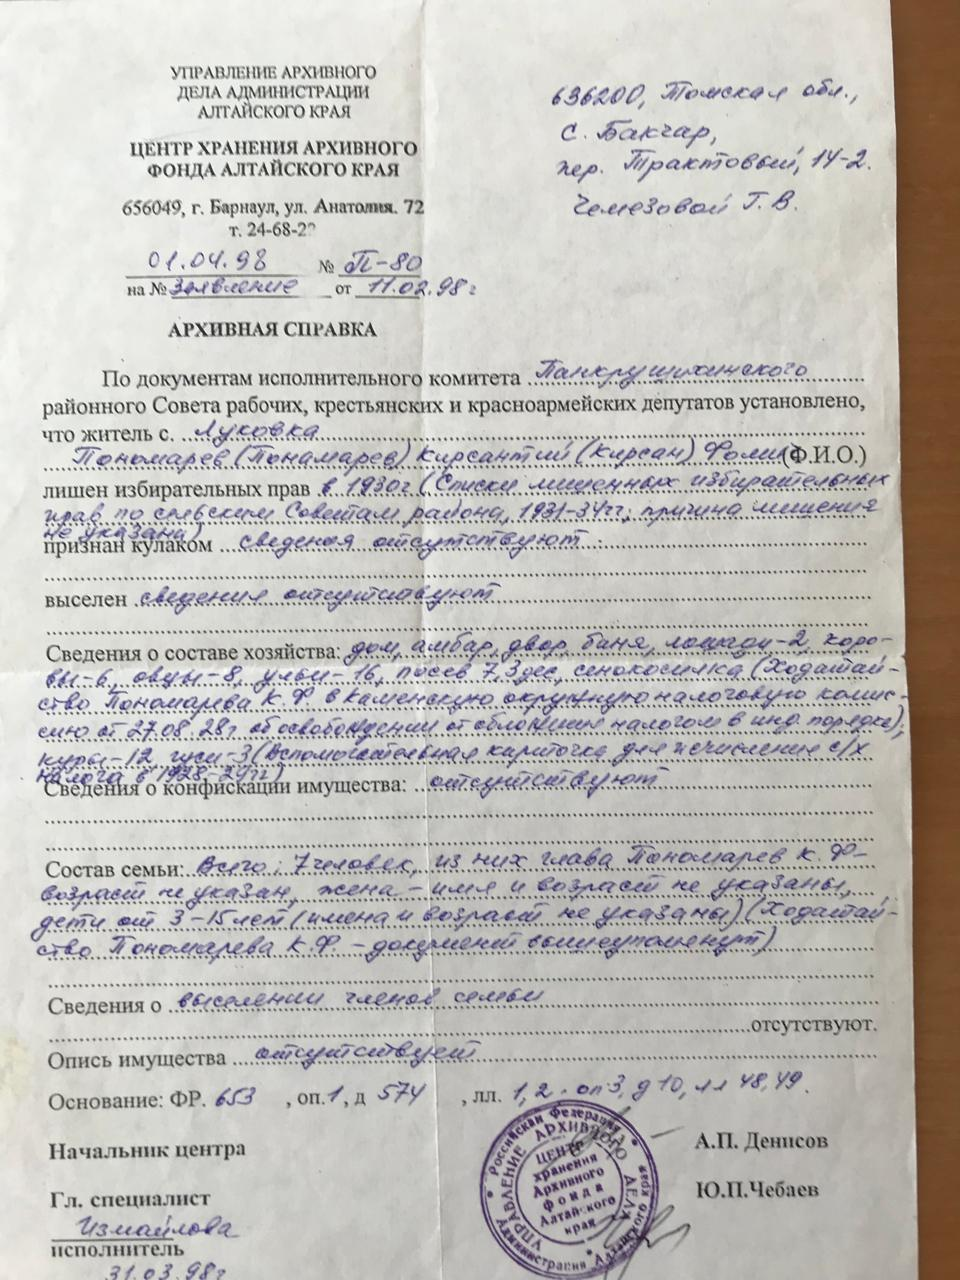 УПРАВЛЕНИЕ АРХИВНОГО
ДЕЛА АДМИНИСТРАЦИИ
АЛТАЙСКОГО КРАЯ
ЦЕНТР ХРАНЕНИЯ АРХИВНОГО
ФОНДА АЛТАЙСКОГО КРАЯ
656049, г. Барнаул, ул. Анатолия. 72
т. 24-68-2
01.04.98 № П-80
на № Заявление от 11.02.98г
636200, Томская обл.,
с. Бакчар,
пер. Трактовый, 14-2.
Чемезовой Г.В.
АРХИВНАЯ СПРАВКА
По документам исполнительного комитета Панкрушихинского
районного Совета рабочих, крестьянских и красноармейских депутатов установлено,
что житель с. Луковка
Пономарев (Понамарев) Кирсантий (Кирсан) Фомич (Ф.И.О.)
лишен избирательных прав в 1930г (Списки лишенных избирательных
прав по сельским Советам района, 1931-34гг; причина лишения
не указана)
признан кулаком сведения отсутствуют
выселен сведения отсутствуют
Сведения о составе хозяйства: дом, амбар, двор, баня, лошади-2, коро-
вы-6, овцы-8, ульи-16, посев 7,3дес, сенокосилка (Ходатай-
ство Пономарева К.Ф. в Каменскую окружную налоговую комис-
сию от 27.08.28г об освобождении от обложения налогом в инд. порядке),
куры-12, гуси-3 (Вспомогательная карточка для исчисления с/х
налога в 1928-29гг)
Сведения о конфискации имущества: отсутствуют
Состав семьи: Всего: 7 человек, из них глава Пономарев К.Ф-
возраст не указан, жена - имя и возраст не указаны,
дети от 3-15 лет (имена и возраст не указаны) (Ходатай-
ство Пономарева К.Ф. - документ вышеупомянут)
Сведения о выселении членов семьи
отсутствуют.
Опись имущества отсутствует
Основание: ФР. 653, оп.1, д 574, лл. 1,2. оп3, д 10, лл 48,49.
Начальник центра А.П. Денисов
Гл. специалист Ю.П.Чебаев
Измайлова
исполнитель
31.03.98г
Российская Федерация
Администрация Алтайского края
УПРАВЛЕНИЕ АРХИВНОГО ДЕЛА
ЦЕНТР
хранения
Архивного
фонда
Алтайского
края